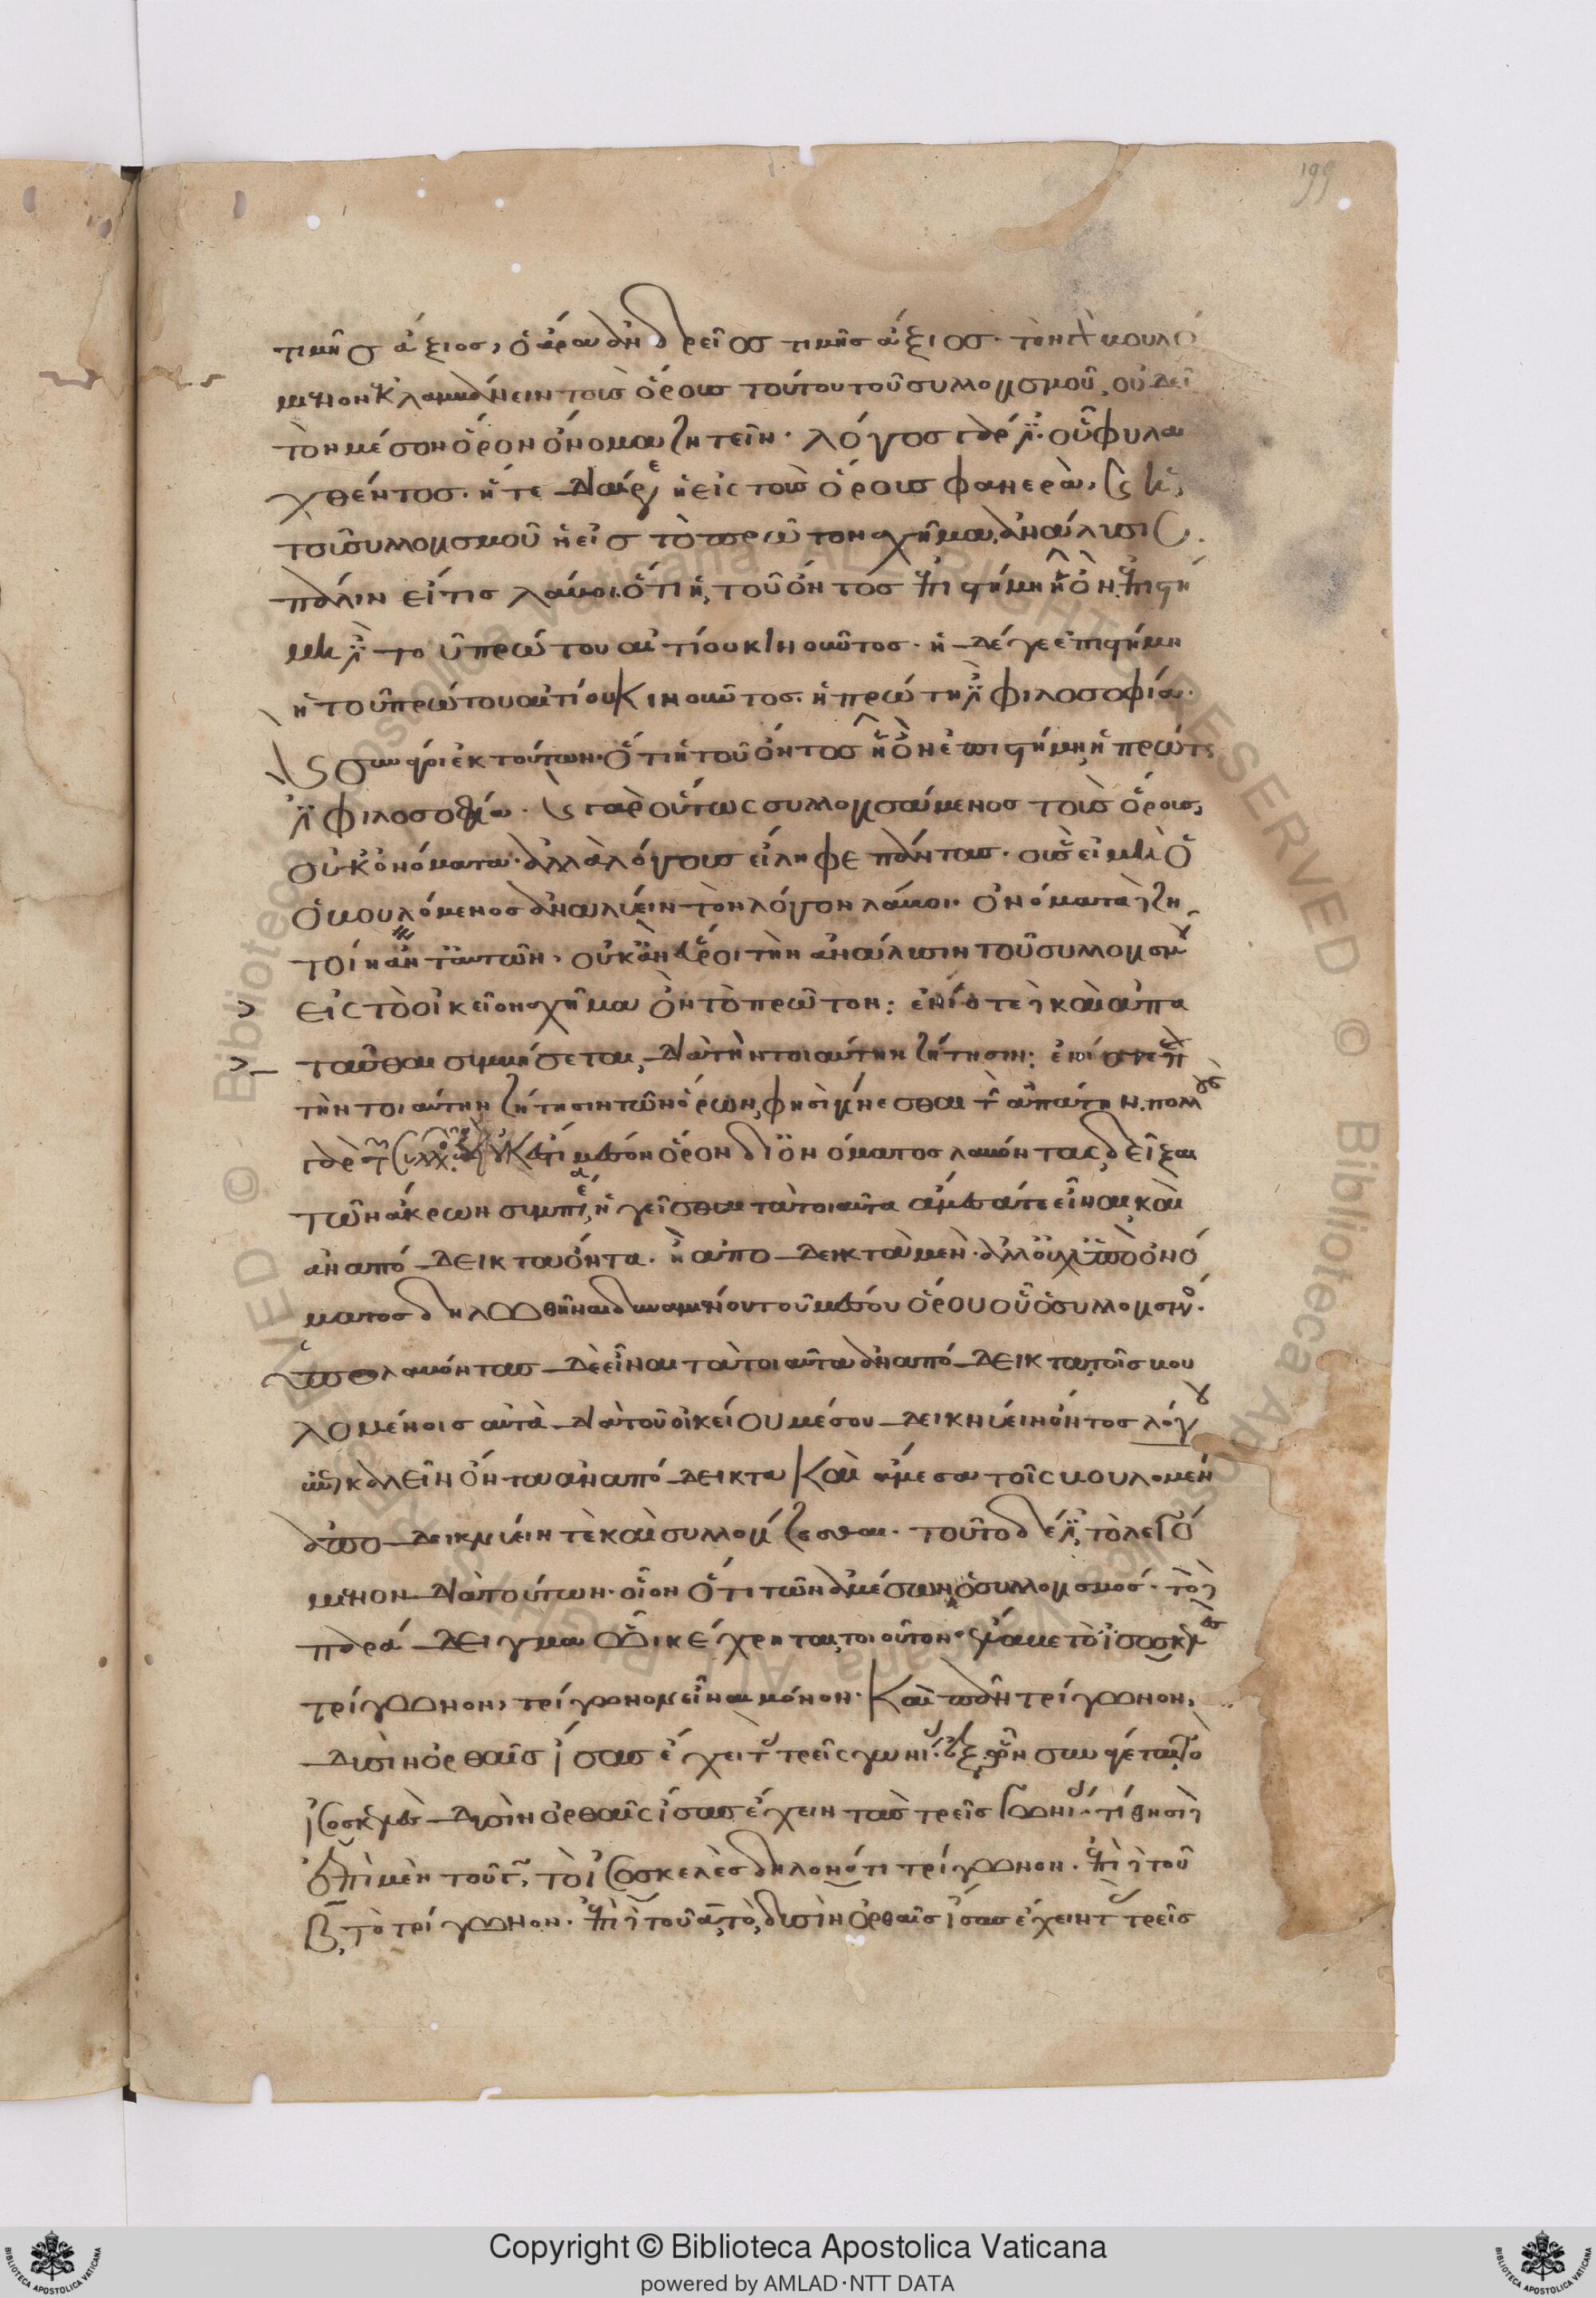 199
τιμῆς ἄξιος, ὁ ἄρα ἀνδρεῖος τιμῆς ἄξιος· τὸν δὴ βουλό
μενον ἐκλαμβάνειν τοὺς ὅρους τούτου τοῦ συλλογισμοῦ, οὐ δεῖ
τὸν μέσον ὅρον ὄνομα ζητεῖν· λόγος γάρ ἐστι· οὗ φυλα
χθέντος· ἥ τε διαίρεσις ἡ εἰς τοὺς ὅρους φανερὰ, καὶ ἡ
τοῦ συλλογισμοῦ ἡ εἰς τὸ πρῶτον σχῆμα ἀνάλυσις.
πάλιν εἴ τις λάβοι ὅτι ἡ τοῦ ὄντος ἐπιστήμη ᾗ ὄν, ἐπιστή
μη ἐστὶ τοῦ πρώτου αἰτίου κινοῦντος· ἡ δέ γε ἐπιστήμη
ἡ τοῦ πρώτου αἰτίου κινοῦντος· ἡ πρώτη ἐστὶ φιλοσοφία·
καὶ συνάγοι ἐκ τούτων· ὅτι ἡ τοῦ ὄντος ᾗ ὂν ἐπιστήμη, ἡ πρώτη
ἐστὶ φιλοσοφία· καὶ γὰρ οὕτως συλλογισάμενος τοὺς ὅρους,
οὐκ ὀνόματα· ἀλλὰ λόγους εἴληφε πάντας· οὓς εἰ μὴ ὁ
ὁ βουλόμενος ἀναλύειν τὸν λόγον λάβοι· ὀνόματα δὲ ζη
τοίη ἀντ' αὐτῶν· οὐκ ἂν εὕροι τὴν ἀνάλυσιν τοῦ συλλογισμοῦ
εἰς τὸ οἰκεῖον σχῆμα ὂν τὸ πρῶτον: ἐνίοτε δὲ καὶ ἀπα
τᾶσθαι συμβήσεται, διὰ τὴν τοιαύτην ζήτησιν: ἐνίοτε ἐπὶ
τὴν τοιαύτην ζήτησιν τῶν ὅρων, φησὶ γίνεσθαι τὴν ἀπάτην. πολλοὺς
τῶν ἄκρων συμπε ἡγεῖσθαι τὰ τοιαῦτα ἄμεσά τε εἶναι, καὶ
ἀναπόδεικτα ὄντα. ἢ ἀποδεικτὰ μὲν· ἀλλ' οὐχ ὑπὸ ὀνό
ματος δηλωθῆναι δυναμένου τοῦ μέσου ὅρου οὗ ὁ συλλογισμός.
ὑπολαβόντας δὲ εἶναι τὰ τοιαῦτα ἀναπόδεικτα, τοῖς βου
λομένοις αὐτὰ διὰ τοῦ οἰκείου μέσου δεικνύειν ὄντος λόγου
καλεῖν ὄντα ἀναπόδεικτα καὶ ἄμεσα τοῖς βουλομέν
ἀποδεικνύειν τε καὶ συλλογίζεσθαι. τοῦτο δέ ἐστι, τὸ λεγό
μενον διὰ τούτων· οἷον ὅτι τῶν ἀμέσων, ὁ συλλογισμός· τὸ δὲ
παράδειγμα ᾧ κέχρηται, τοιοῦτον· λάβε τὸ ἰσοσκελὲς
τρίγωνον, τρίγωνον εἶναι μόνον· καὶ πᾶν τρίγωνον,
δυσὶν ὀρθαῖς ἴσας ἔχει τὰς τρεῖς γωνίας· ἐξ ὧν συνάγεται, τὸ
ἰσοσκελὲς δυσὶν ὀρθαῖς ἴσας ἔχειν τὰς τρεῖς γωνίας. τίθησι δὲ
ἐπὶ μὲν τοῦ γ, τὸ ἰσοσκελὲς δηλονότι τρίγωνον. ἐπὶ δὲ τοῦ
β, τὸ τρίγωνον. ἐπὶ δὲ τοῦ α, τὸ, δυσὶν ὀρθαῖς ἴσας ἔχειν τὰς τρεῖς
Copyright © Biblioteca Apostolica Vaticana
powered by AMLAD·NTT DATA